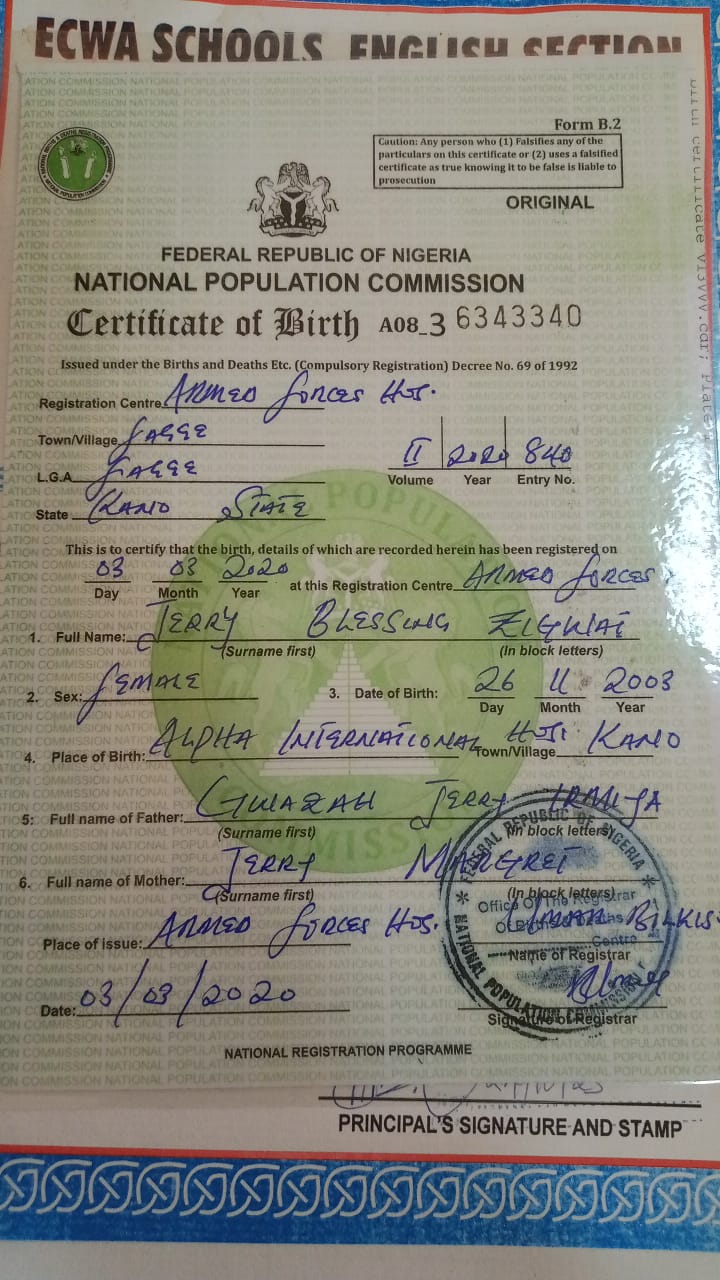 ECWA SCHOOLS ENGLISH SECTION
Form B.2
Caution: Any person who (1) Falsifies any of the
particulars on this certificate or (2) uses a falsified
certificate as true knowing it to be false is liable to
prosecution
ORIGINAL
FEDERAL REPUBLIC OF NIGERIA
NATIONAL POPULATION COMMISSION
Certificate of Birth A08_3 6343340
Issued under the Births and Deaths Etc. (Compulsory Registration) Decree No. 69 of 1992
Registration Centre ARMED FORCES HOS.
Town/Village FAGGE
L.G.A FAGGE
II 2020 840
Volume Year Entry No.
State KANO STATE
This is to certify that the birth, details of which are recorded herein has been registered on
03 03 2020 at this Registration Centre ARMED FORCES
Day Month Year
1. Full Name: JERRY BLESSING ZIGWAI
(Surname first) (In block letters)
2. Sex: FEMALE 3. Date of Birth: 26 11 2003
Day Month Year
4. Place of Birth: ALPHA INTERNATIONAL HOS. Town/Village KANO
5: Full name of Father: GWAZAH JERRY IRMIYA
(Surname first) (In block letters)
6. Full name of Mother: JERRY MARGRET
(Surname first) (In block letters)
Place of issue: ARMED FORCES HOS. UMAR BILKIS
Name of Registrar
Date: 03/03/2020
Signature of Registrar
FEDERAL REPUBLIC OF NIGERIA
Office Of The Registrar
Centre
NATIONAL POPULATION COMMISSION
NATIONAL REGISTRATION PROGRAMME
PRINCIPAL'S SIGNATURE AND STAMP